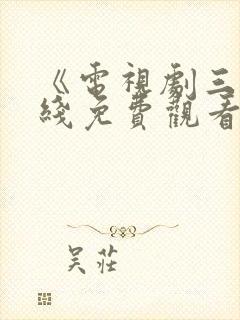 《電視劇三
綫免費觀看
吴莊